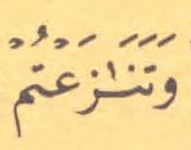 وَتَنَٰزَعْتُمْ